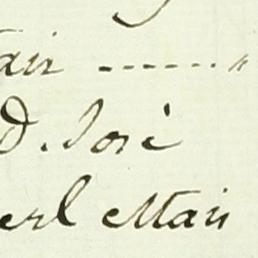 air ------"
D. José
erl Mair